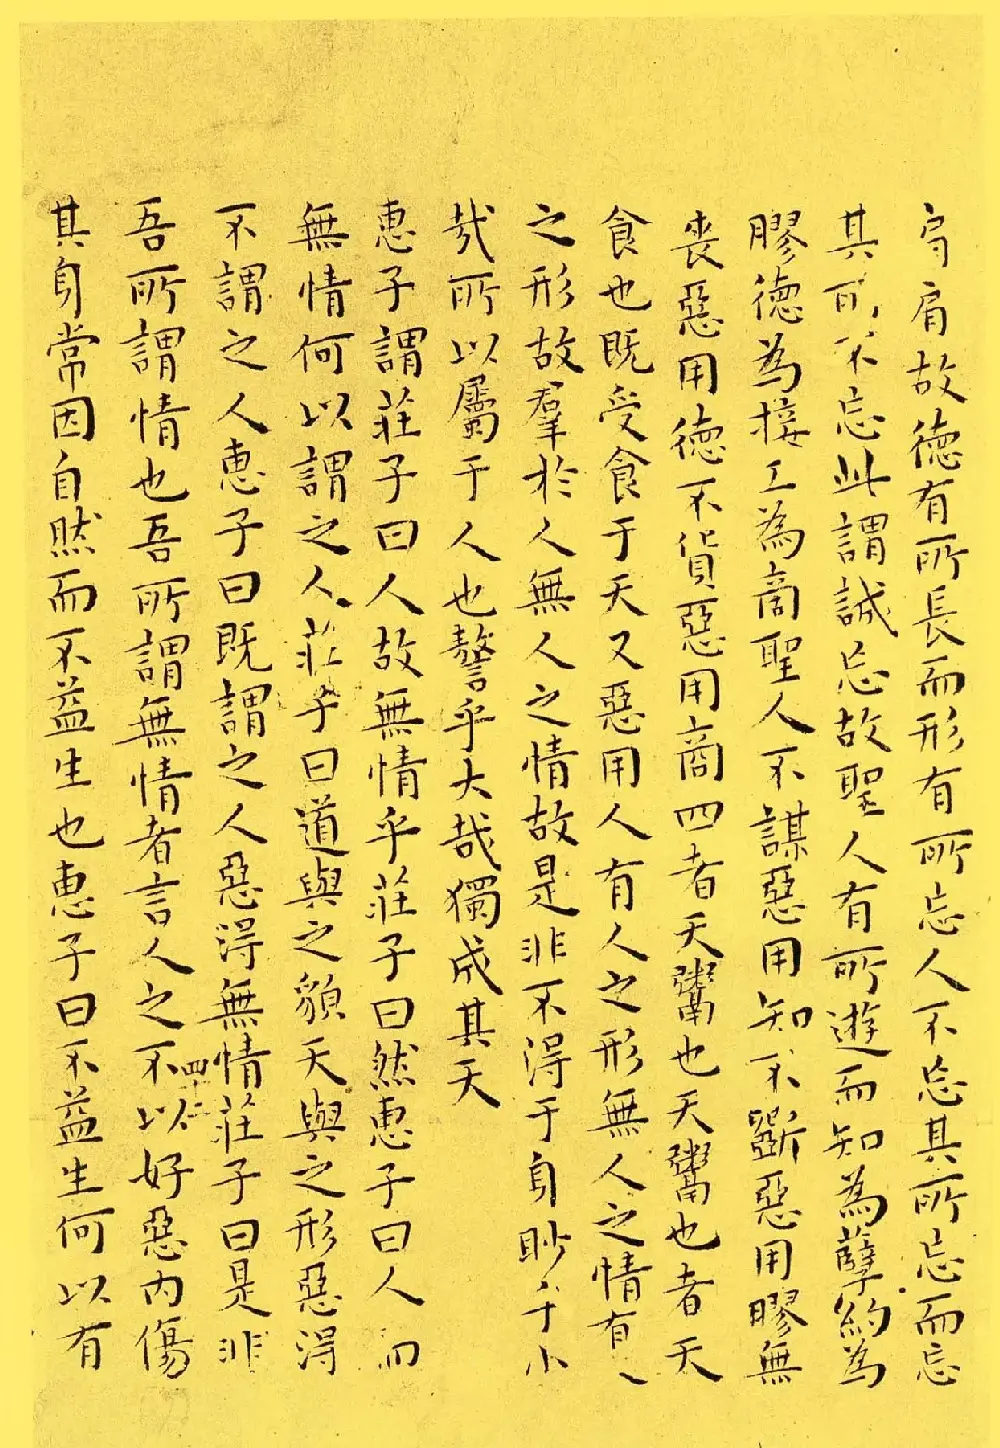 肩肩故德有所長而形有所忘人不忘其所忘而忘
其所不忘此謂誠忘故聖人有所遊而知為孽約為
膠德為接工為商聖人不謀惡用知不斵惡用膠無
喪惡用德不貨惡用商四者天鬻也天鬻也者天
食也既受食于天又惡用人有人之形無人之情有人
之形故羣於人無人之情故是非不得于身眇乎小
哉所以屬于人也謷乎大哉獨成其天
惠子謂莊子曰人故無情乎莊子曰然惠子曰人而
無情何以謂之人莊子曰道與之貌天與之形惡得
不謂之人惠子曰既謂之人惡得無情莊子曰是非
吾所謂情也吾所謂無情者言人之不以好惡內傷
四十二
其身常因自然而不益生也惠子曰不益生何以有